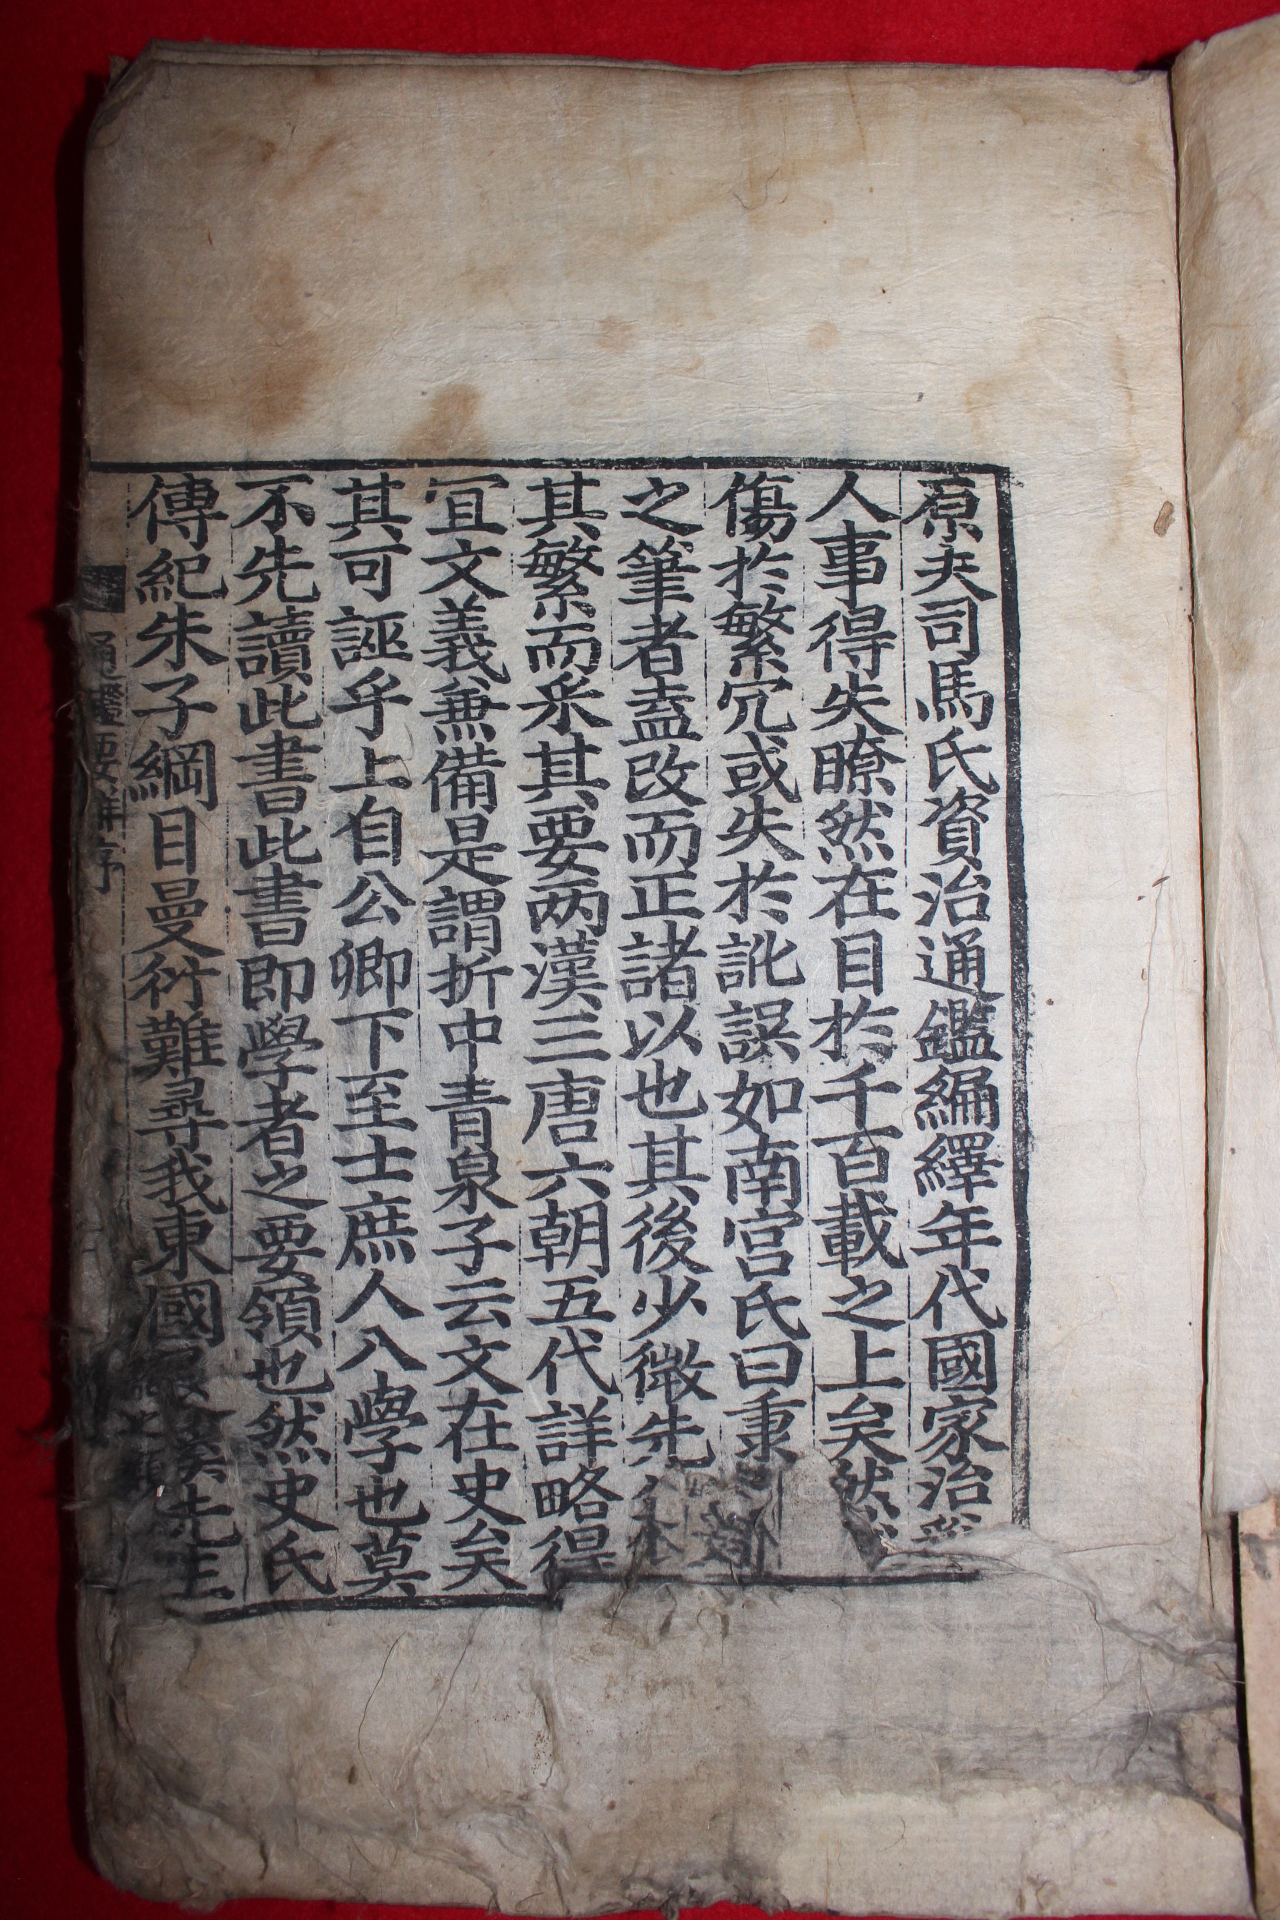 原夫司馬氏資治通鑑編繹年代國家治
人事得失瞭然在目於千百載之上矣然
傷於繁冗或失於訛誤如南宮氏曰秉
之筆者盍改而正諸以也其後少微先
其繁而釆其要两漢三唐六朝五代詳略得
冝文義兼備是謂折中青泉子云文在史矣
其可誣乎上自公卿下至士庶人入學也莫
不先讀此書此書即學者之要領也然史氏
傳紀朱子綱目曼衍難尋我東國 先生
通鑑要解序